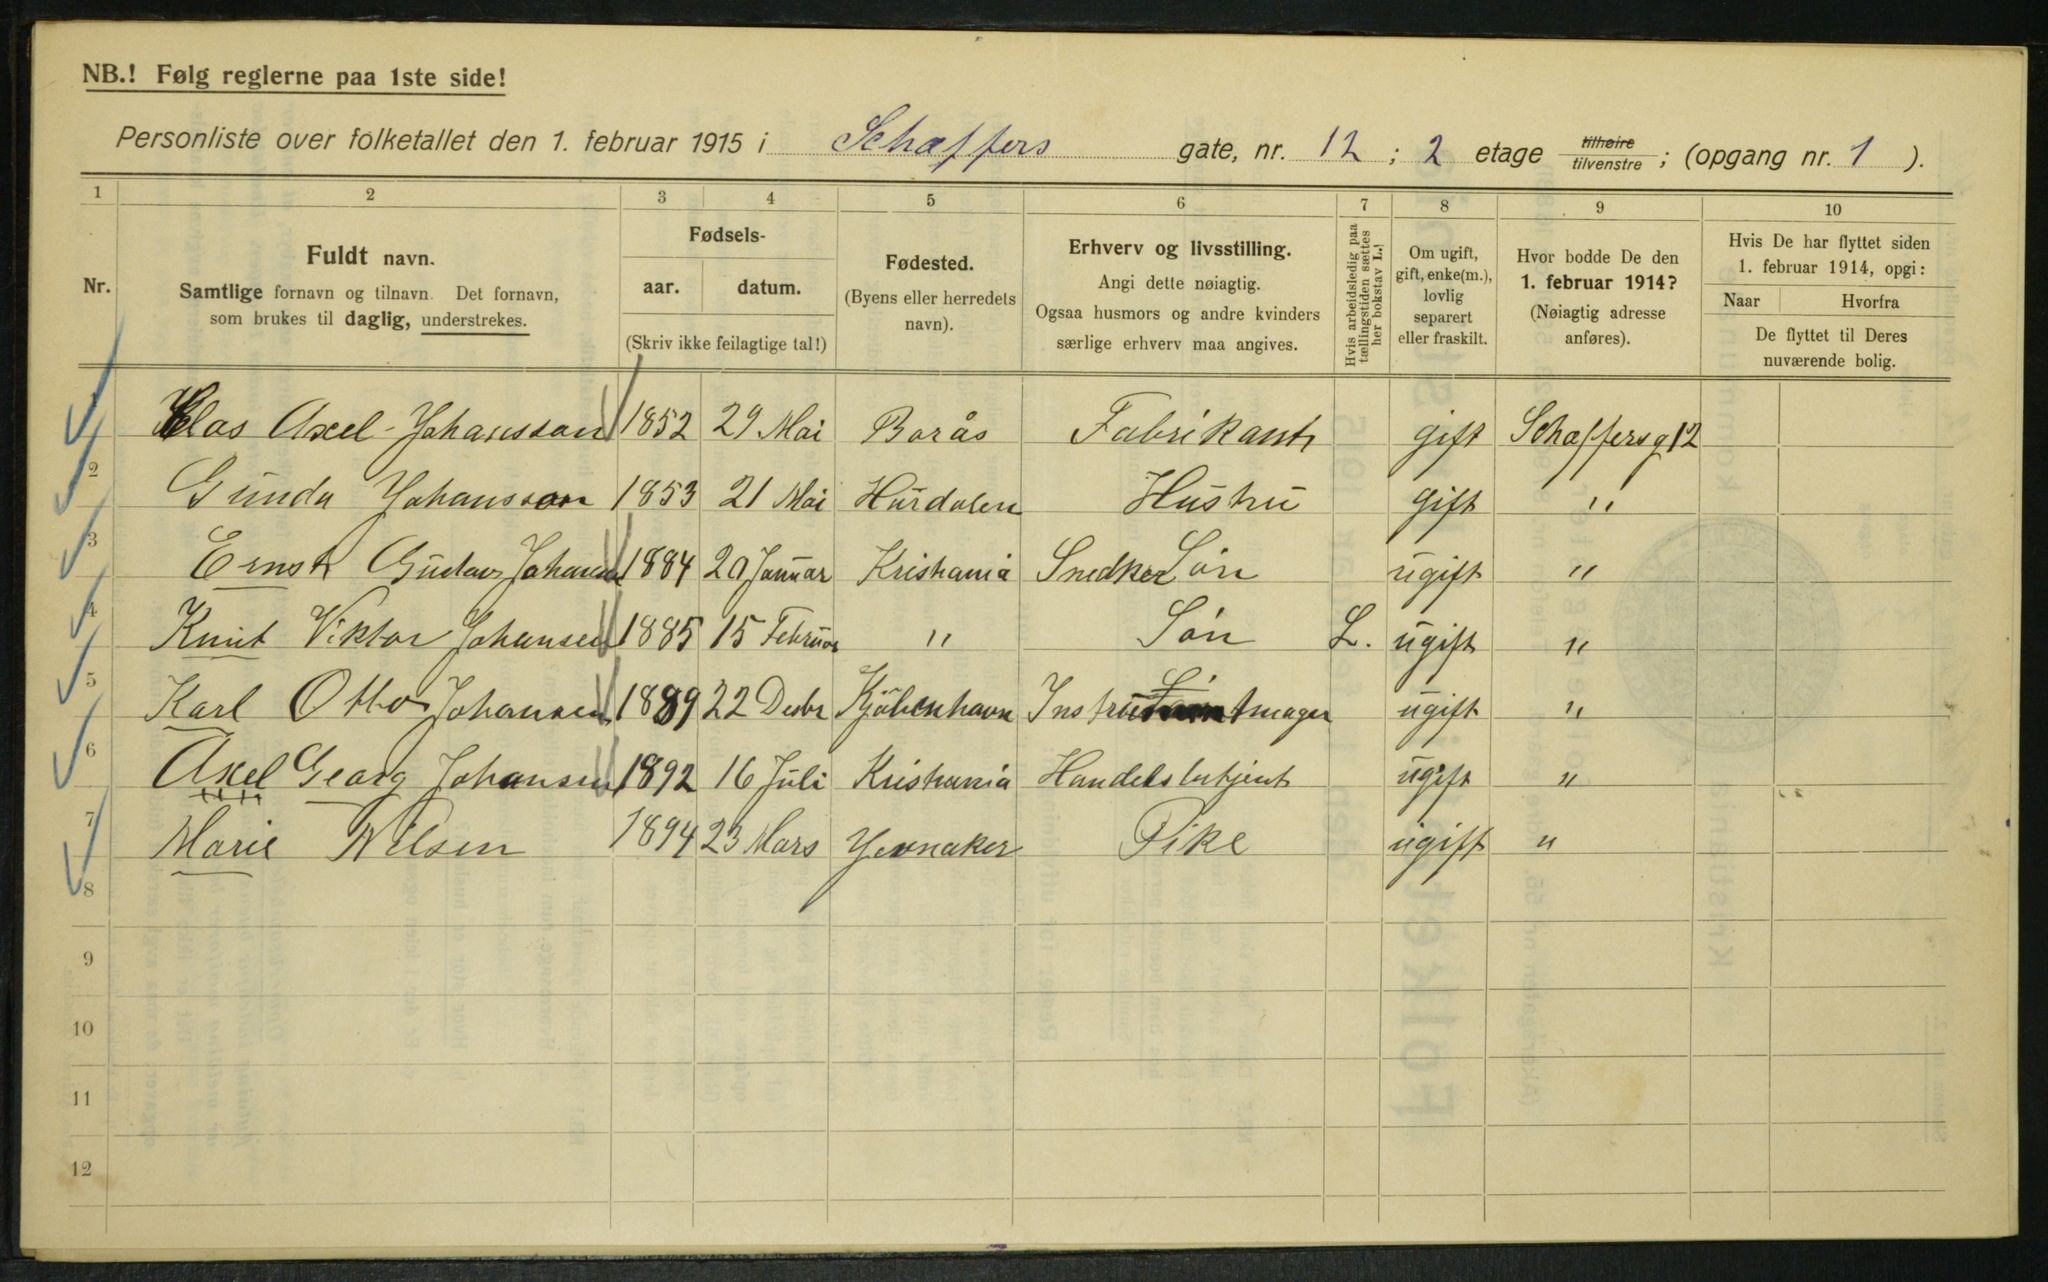 NB.! Følg reglerne paa 1ste side!
Personliste over folketallet den 1. februar 1915 i Schæffers gate, nr. 12 ; 2 etage tilhøire tilvenstre ; (opgang nr. 1 ).
1 2 3 4 5 6 7 8 9 10
Nr.
Fuldt navn.
Samtlige fornavn og tilnavn. Det fornavn,
som brukes til daglig, understrekes.
Fødsels-
aar. datum.
(Skriv ikke feilagtige tal!)
Fødested.
(Byens eller herredets
navn).
Erhverv og livsstilling.
Angi dette nøiagtig.
Ogsaa husmors og andre kvinders
særlige erhverv maa angives.
Hvis arbeidsledig paa
tællingstiden sættes
her bokstav L.!
Om ugift,
gift, enke(m.),
lovlig
separert
eller fraskilt.
Hvor bodde De den
1. februar 1914?
(Nøiagtig adresse
anføres).
Hvis De har flyttet siden
1. februar 1914, opgi:
Naar Hvorfra
De flyttet til Deres
nuværende bolig.
1 Klas Axel Johansson 1852 29 Mai Borås Fabrikant gift Schæffersg 12
2 Gunda Johansson 1853 21 Mai Hurdalen Hustru gift "
3 Ernst Gustav Johansen 1884 20 Januar Kristiania Snedker Søn ugift "
4 Knut Viktor Johansen 1885 15 Februar " Søn L. ugift "
5 Karl Otto Johansen 1889 22 Desbr Kjöbenhavn Instrumentmager ugift "
6 Axel Georg Johansen 1892 16 Juli Kristiania Handelsbetjent ugift "
7 Marie Nilsen 1894 23 Mars Jevnaker Pike ugift "
8
9
10
11
12